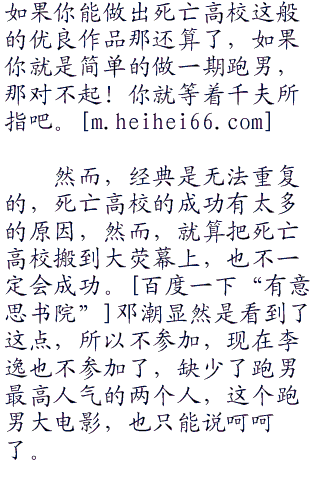 如果你能做出死亡高校这般
的优良作品那还算了，如果
你就是简单的做一期跑男，
那对不起！你就等着千夫所
指吧。[m.heihei66.com]
然而，经典是无法重复
的，死亡高校的成功有太多
的原因，然而，就算把死亡
高校搬到大荧幕上，也不一
定会成功。[百度一下“有意
思书院”]邓潮显然是看到了
这点，所以不参加，现在李
逸也不参加了，缺少了跑男
最高人气的两个人，这个跑
男大电影，也只能说呵呵
了。